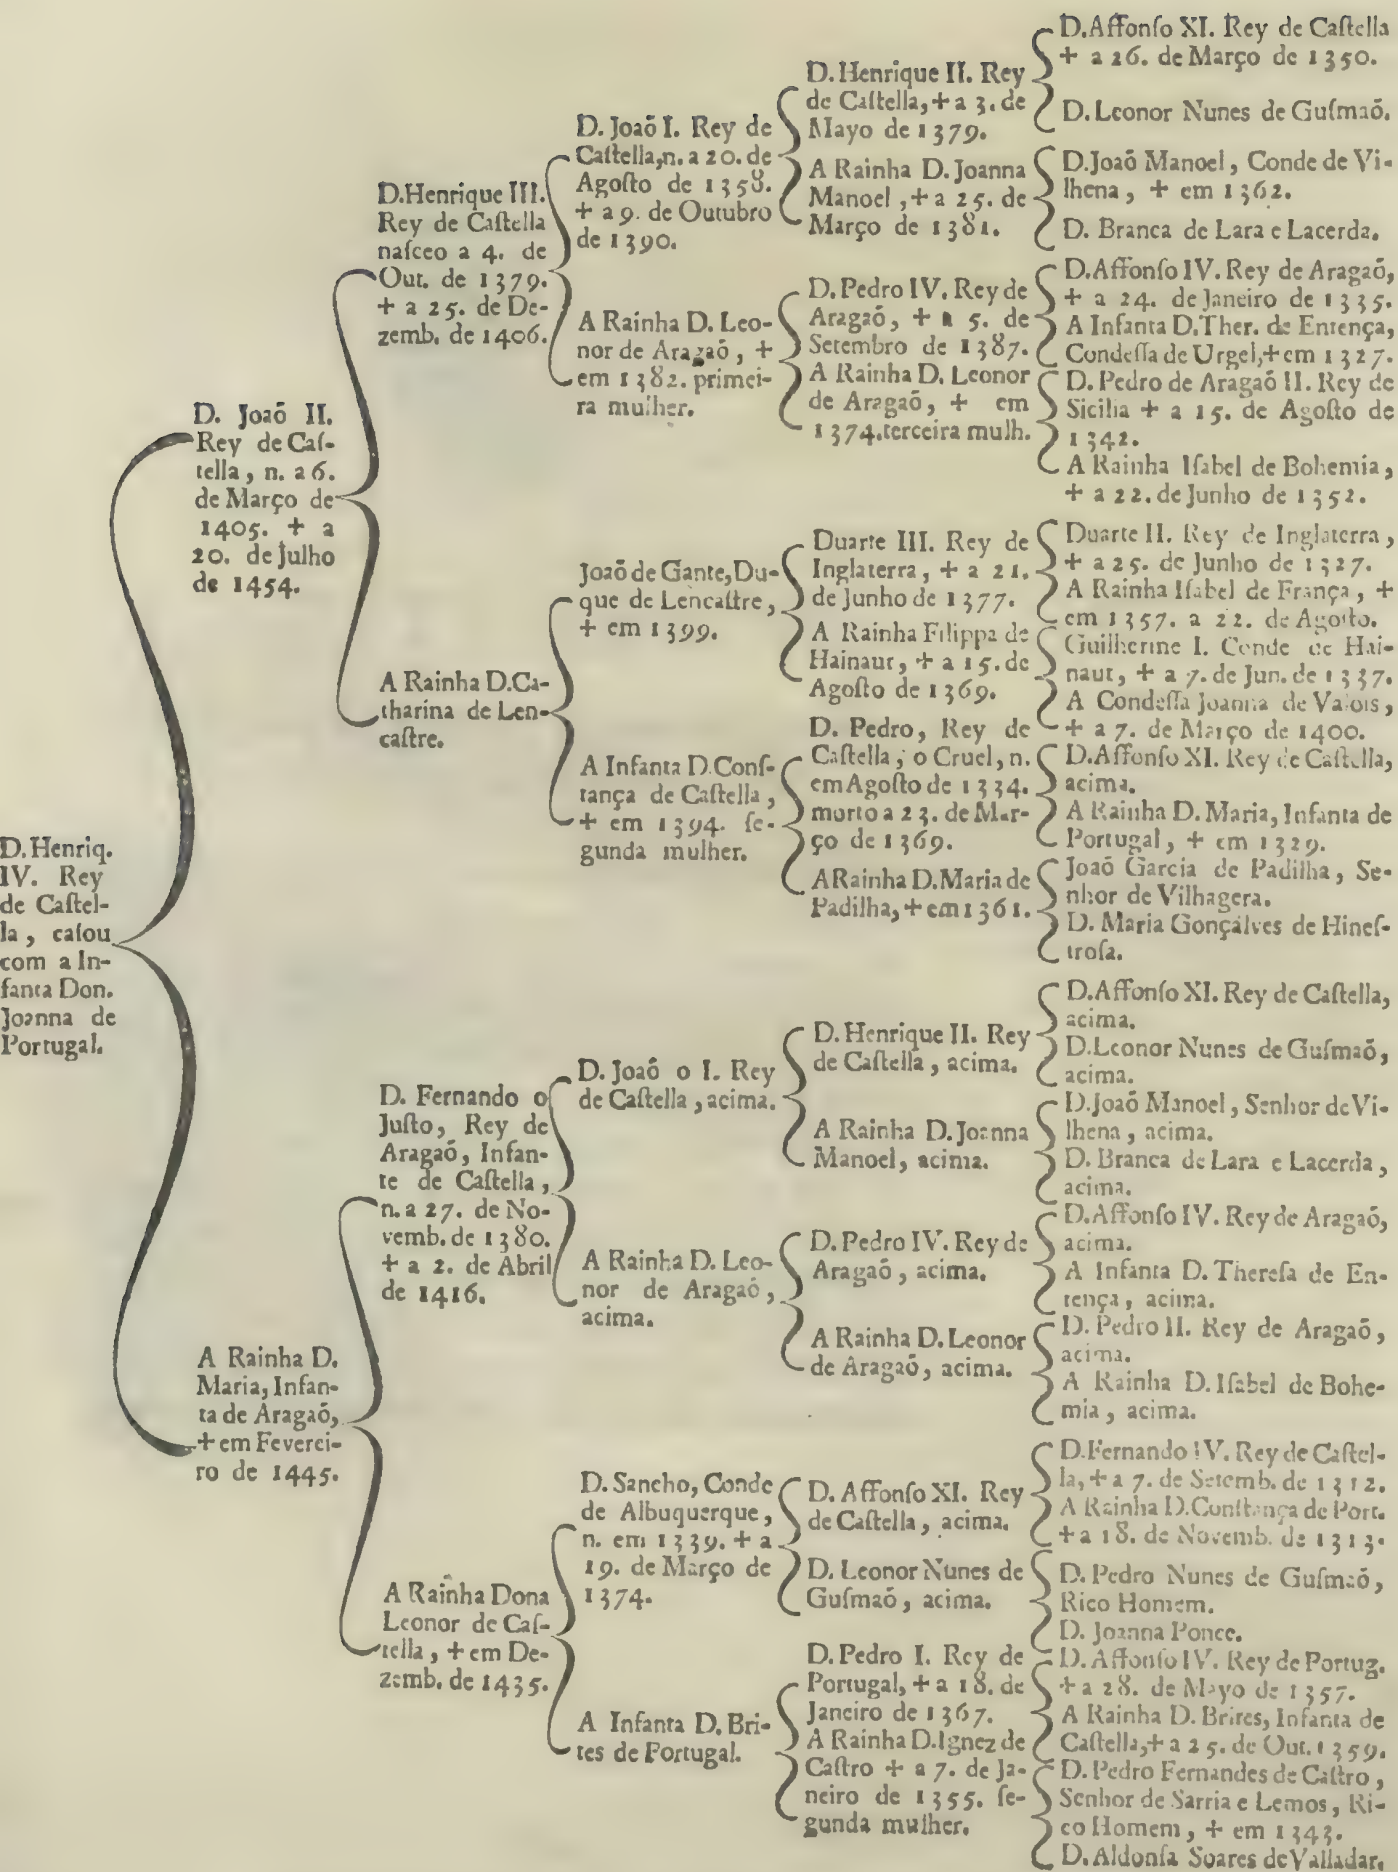 D.Henriq.
IV. Rey
de Caſtel-
la , caſou
com a In-
fanta Don.
Joanna de
Portugal.
D. Joaõ II.
Rey de Caſ-
tella , n. a 6.
de Março de
1405. + a
20. de Julho
de 1454.
A Rainha D.
Maria, Infan-
ta de Aragaõ,
+ em Feverei-
ro de 1445.
D.Henrique III.
Rey de Caſtella
naſceo a 4. de
Out. de 1379.
+ a 25. de De-
zemb. de 1406.
A Rainha D.Ca-
tharina de Len-
caſtre.
D. Fernando o
Juſto, Rey de
Aragaõ, Infan-
te de Caſtella ,
n. a 27. de No-
vemb. de 1380.
+ a 2. de Abril
de 1416.
A Rainha Dona
Leonor de Caſ-
tella , + em De-
zemb. de 1435.
D. Joaõ I. Rey de
Caſtella,n. a 20. de
Agoſto de 1358.
+ a 9. de Outubro
de 1390.
A Rainha D. Leo-
nor de Aragaõ , +
em 1382. primei-
ra mulher.
Joaõ de Gante, Du-
que de Lencaſtre ,
+ em 1399.
A Infanta D.Conſ-
tança de Caſtella ,
+ em 1394. ſe-
gunda mulher.
D. Joaõ o I. Rey
de Caſtella , acima.
A Rainha D. Leo-
nor de Aragaõ ,
acima.
D. Sancho, Conde
de Albuquerque ,
n. em 1339. + a
19. de Março de
1374.
A Infanta D. Bri-
tes de Portugal.
D. Henrique II. Rey
de Caſtella, + a 3. de
Mayo de 1379.
A Rainha D. Joanna
Manoel , + a 25. de
Março de 1381.
D. Pedro IV. Rey de
Aragaõ, + a 5. de
Setembro de 1387.
A Rainha D. Leonor
de Aragaõ, + em
1374.terceira mulh.
Duarte III. Rey de
Inglaterra , + a 21.
de Junho de 1377.
A Rainha Filippa de
Hainaut, + a 15. de
Agoſto de 1369.
D. Pedro, Rey de
Caſtella , o Cruel, n.
em Agoſto de 1334.
morto a 23. de Mar-
ço de 1369.
A Rainha D.Maria de
Padilha, + em 1361.
D. Henrique II. Rey
de Caſtella , acima.
A Rainha D. Joanna
Manoel, acima.
D. Pedro IV. Rey de
Aragaõ , acima.
A Rainha D. Leonor
de Aragaõ, acima.
D. Affonſo XI. Rey
de Caſtella , acima.
D. Leonor Nunes de
Guſmaõ , acima.
D. Pedro I. Rey de
Portugal, + a 18. de
Janeiro de 1367.
A Rainha D.Ignez de
Caſtro + a 7. de Ja-
neiro de 1355. ſe-
gunda mulher.
D.Affonſo XI. Rey de Caſtella
+ a 26. de Março de 1350.
D. Leonor Nunes de Guſmaõ.
D.Joaõ Manoel , Conde de Vi-
lhena , + em 1362.
D. Branca de Lara e Lacerda.
D.Affonſo IV. Rey de Aragaõ,
+ a 24. de Janeiro de 1335.
A Infanta D.Ther. de Entença,
Condeſſa de Urgel,+em 1327.
D. Pedro de Aragaõ II. Rey de
Sicilia + a 15. de Agoſto de
1342.
A Rainha Iſabel de Bohemia ,
+ a 22. de Junho de 1352.
Duarte II. Rey de Inglaterra ,
+ a 25. de Junho de 1327.
A Rainha Iſabel de França , +
em 1357. a 22. de Agoſto.
Guilherme I. Conde de Hai-
naut, + a 7. de Jun. de 1337.
A Condeſſa Joanna de Valois ,
+ a 7. de Março de 1400.
D.Affonſo XI. Rey de Caſtella,
acima.
A Rainha D. Maria, Infanta de
Portugal , + em 1329.
Joaõ Garcia de Padilha , Se-
nhor de Vilhagera.
D. Maria Gonçalves de Hineſ-
troſa.
D.Affonſo XI. Rey de Caſtella,
acima.
D.Leonor Nunes de Guſmaõ ,
acima.
D.Joaõ Manoel , Senhor de Vi-
lhena , acima.
D. Branca de Lara e Lacerda ,
acima.
D.Affonſo IV. Rey de Aragaõ,
acima.
A Infanta D. Thereſa de En-
tença , acima.
D. Pedro II. Rey de Aragaõ ,
acima.
A Rainha D. Iſabel de Bohe-
mia , acima.
D.Fernando IV. Rey de Caſtel-
la, + a 7. de Setemb. de 1312.
A Rainha D.Conſtança de Port.
+ a 18. de Novemb. de 1313.
D. Pedro Nunes de Guſmaõ ,
Rico Homem.
D. Joanna Ponce.
D. Affonſo IV. Rey de Portug.
+ a 28. de Mayo de 1357.
A Rainha D. Brites, Infanta de
Caſtella,+ a 25. de Out. 1359.
D. Pedro Fernandes de Caſtro ,
Senhor de Sarria e Lemos , Ri-
co Homem , + em 1343.
D. Aldonſa Soares de Valladar.